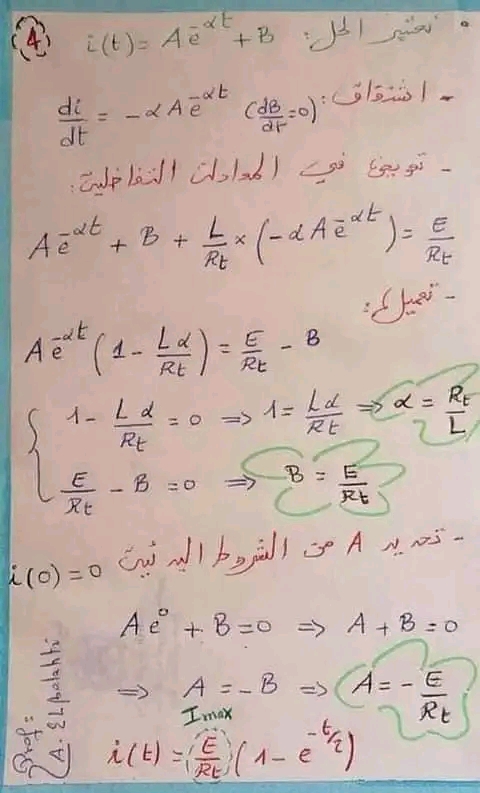 ④ • نعتبر الحل: i(t) = A e^{-αt} + B
- اشتقاق: di/dt = -α A e^{-αt} (dB/dt = 0)
- تعويض في المعادلة التفاضلية:
A e^{-αt} + B + L/Rt × (-α A e^{-αt}) = E/Rt
- تعميل:
A e^{-αt} (1 - Lα/Rt) = E/Rt - B
1 - Lα/Rt = 0 ⇒ 1 = Lα/Rt ⇒ α = Rt/L
E/Rt - B = 0 ⇒ B = E/Rt
- تحديد A من الشروط البدئية
i(0) = 0
A e^0 + B = 0 ⇒ A + B = 0
⇒ A = -B ⇒ A = - E/Rt
Imax
i(t) = E/Rt (1 - e^{-t/τ})
Prof: